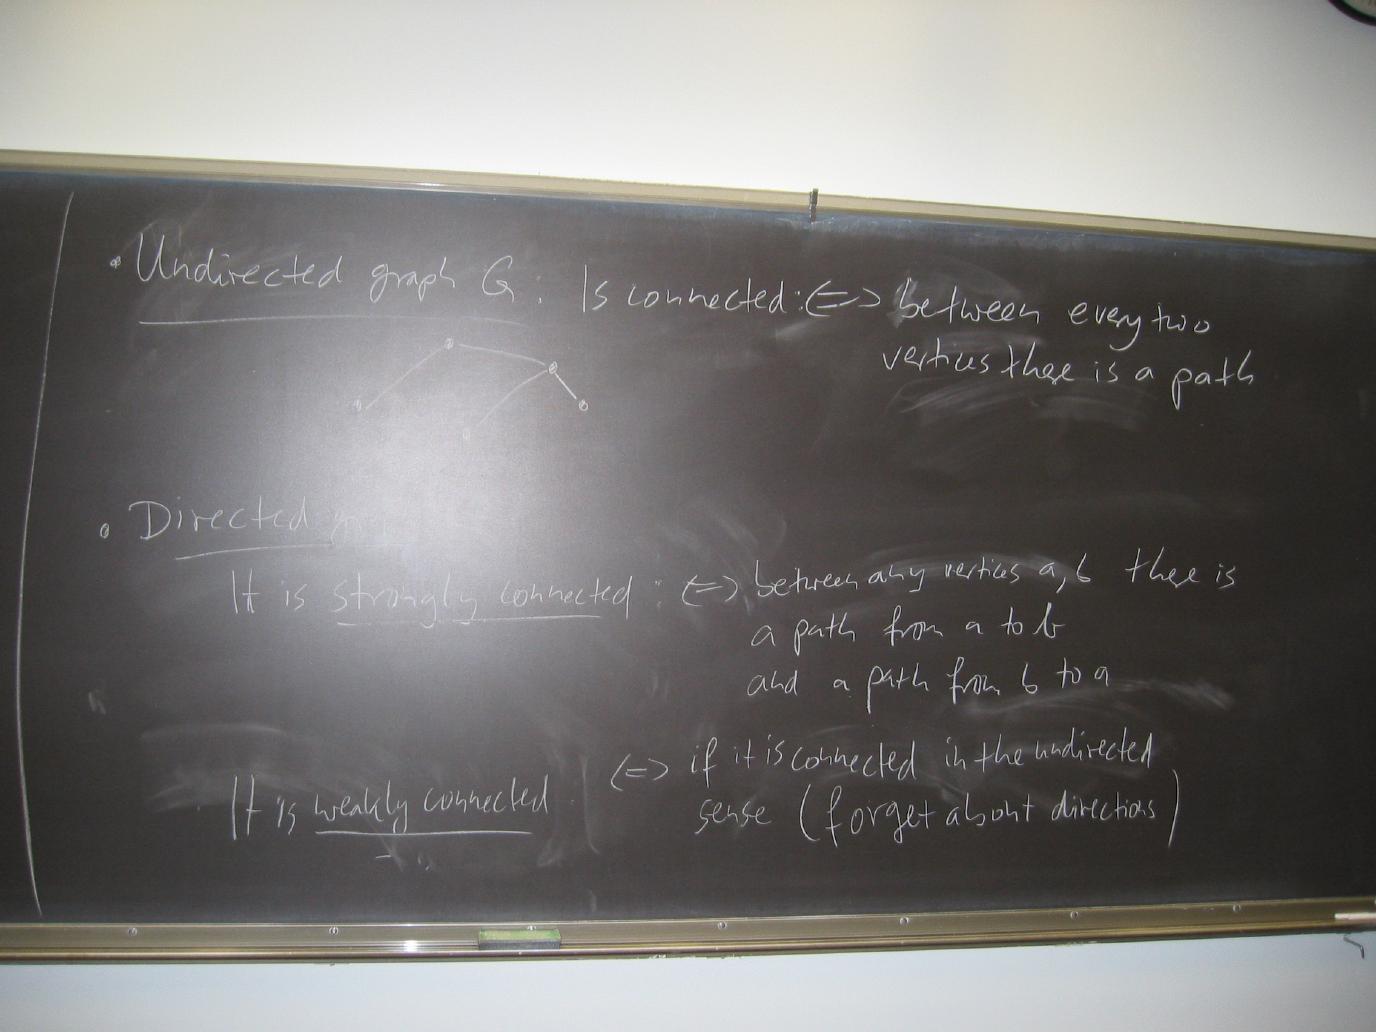 • Undirected graph G: Is connected :<=> between every two
vertices there is a path
• Directed
It is strongly connected : <=> between any vertices a, b there is
a path from a to b
and a path from b to a
It is weakly connected <=> if it is connected in the undirected
sense (forget about directions)